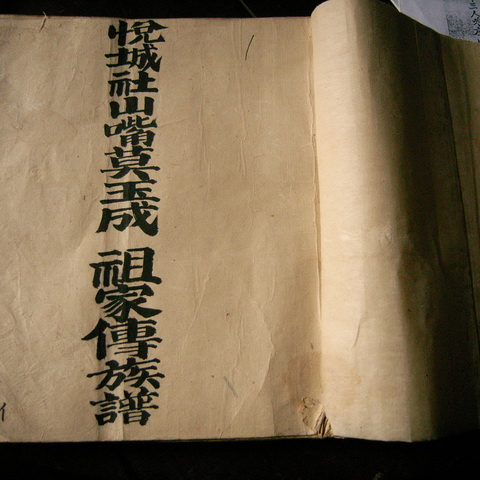 悦城社山嘴莫玉成 祖家傳族譜